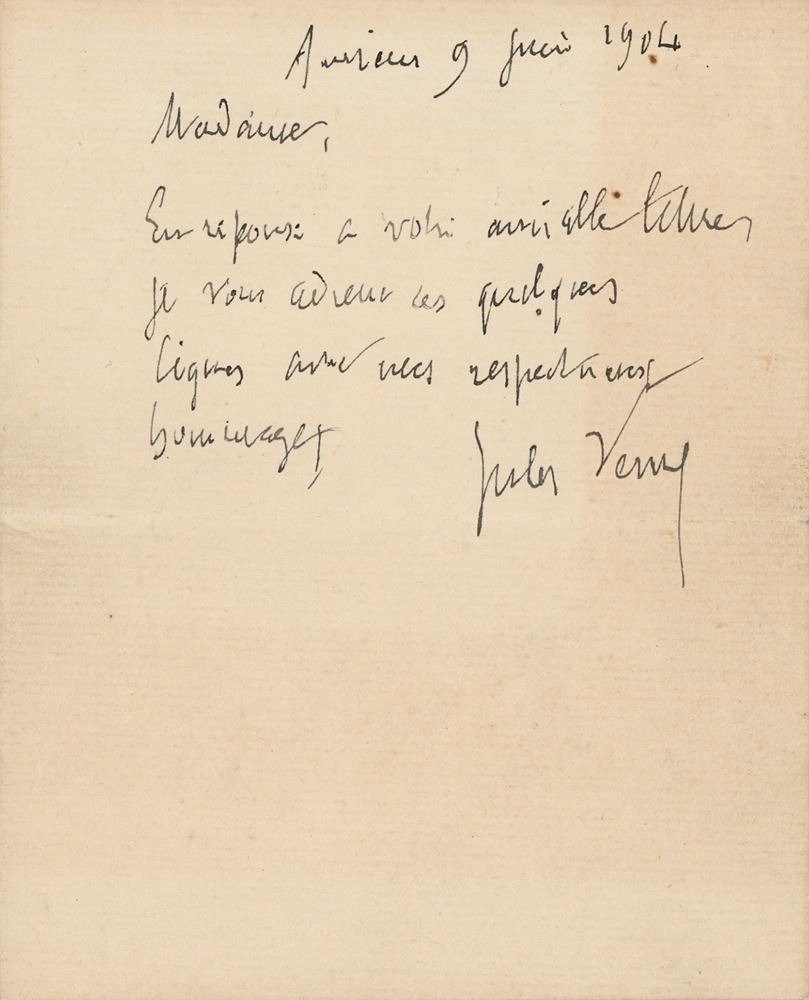 Amiens 9 juin 1904
Madame,
En reponse a votre aimable lettre,
je vous adresse ces quelques
lignes avec mes respectueux
hommages
Jules Verne